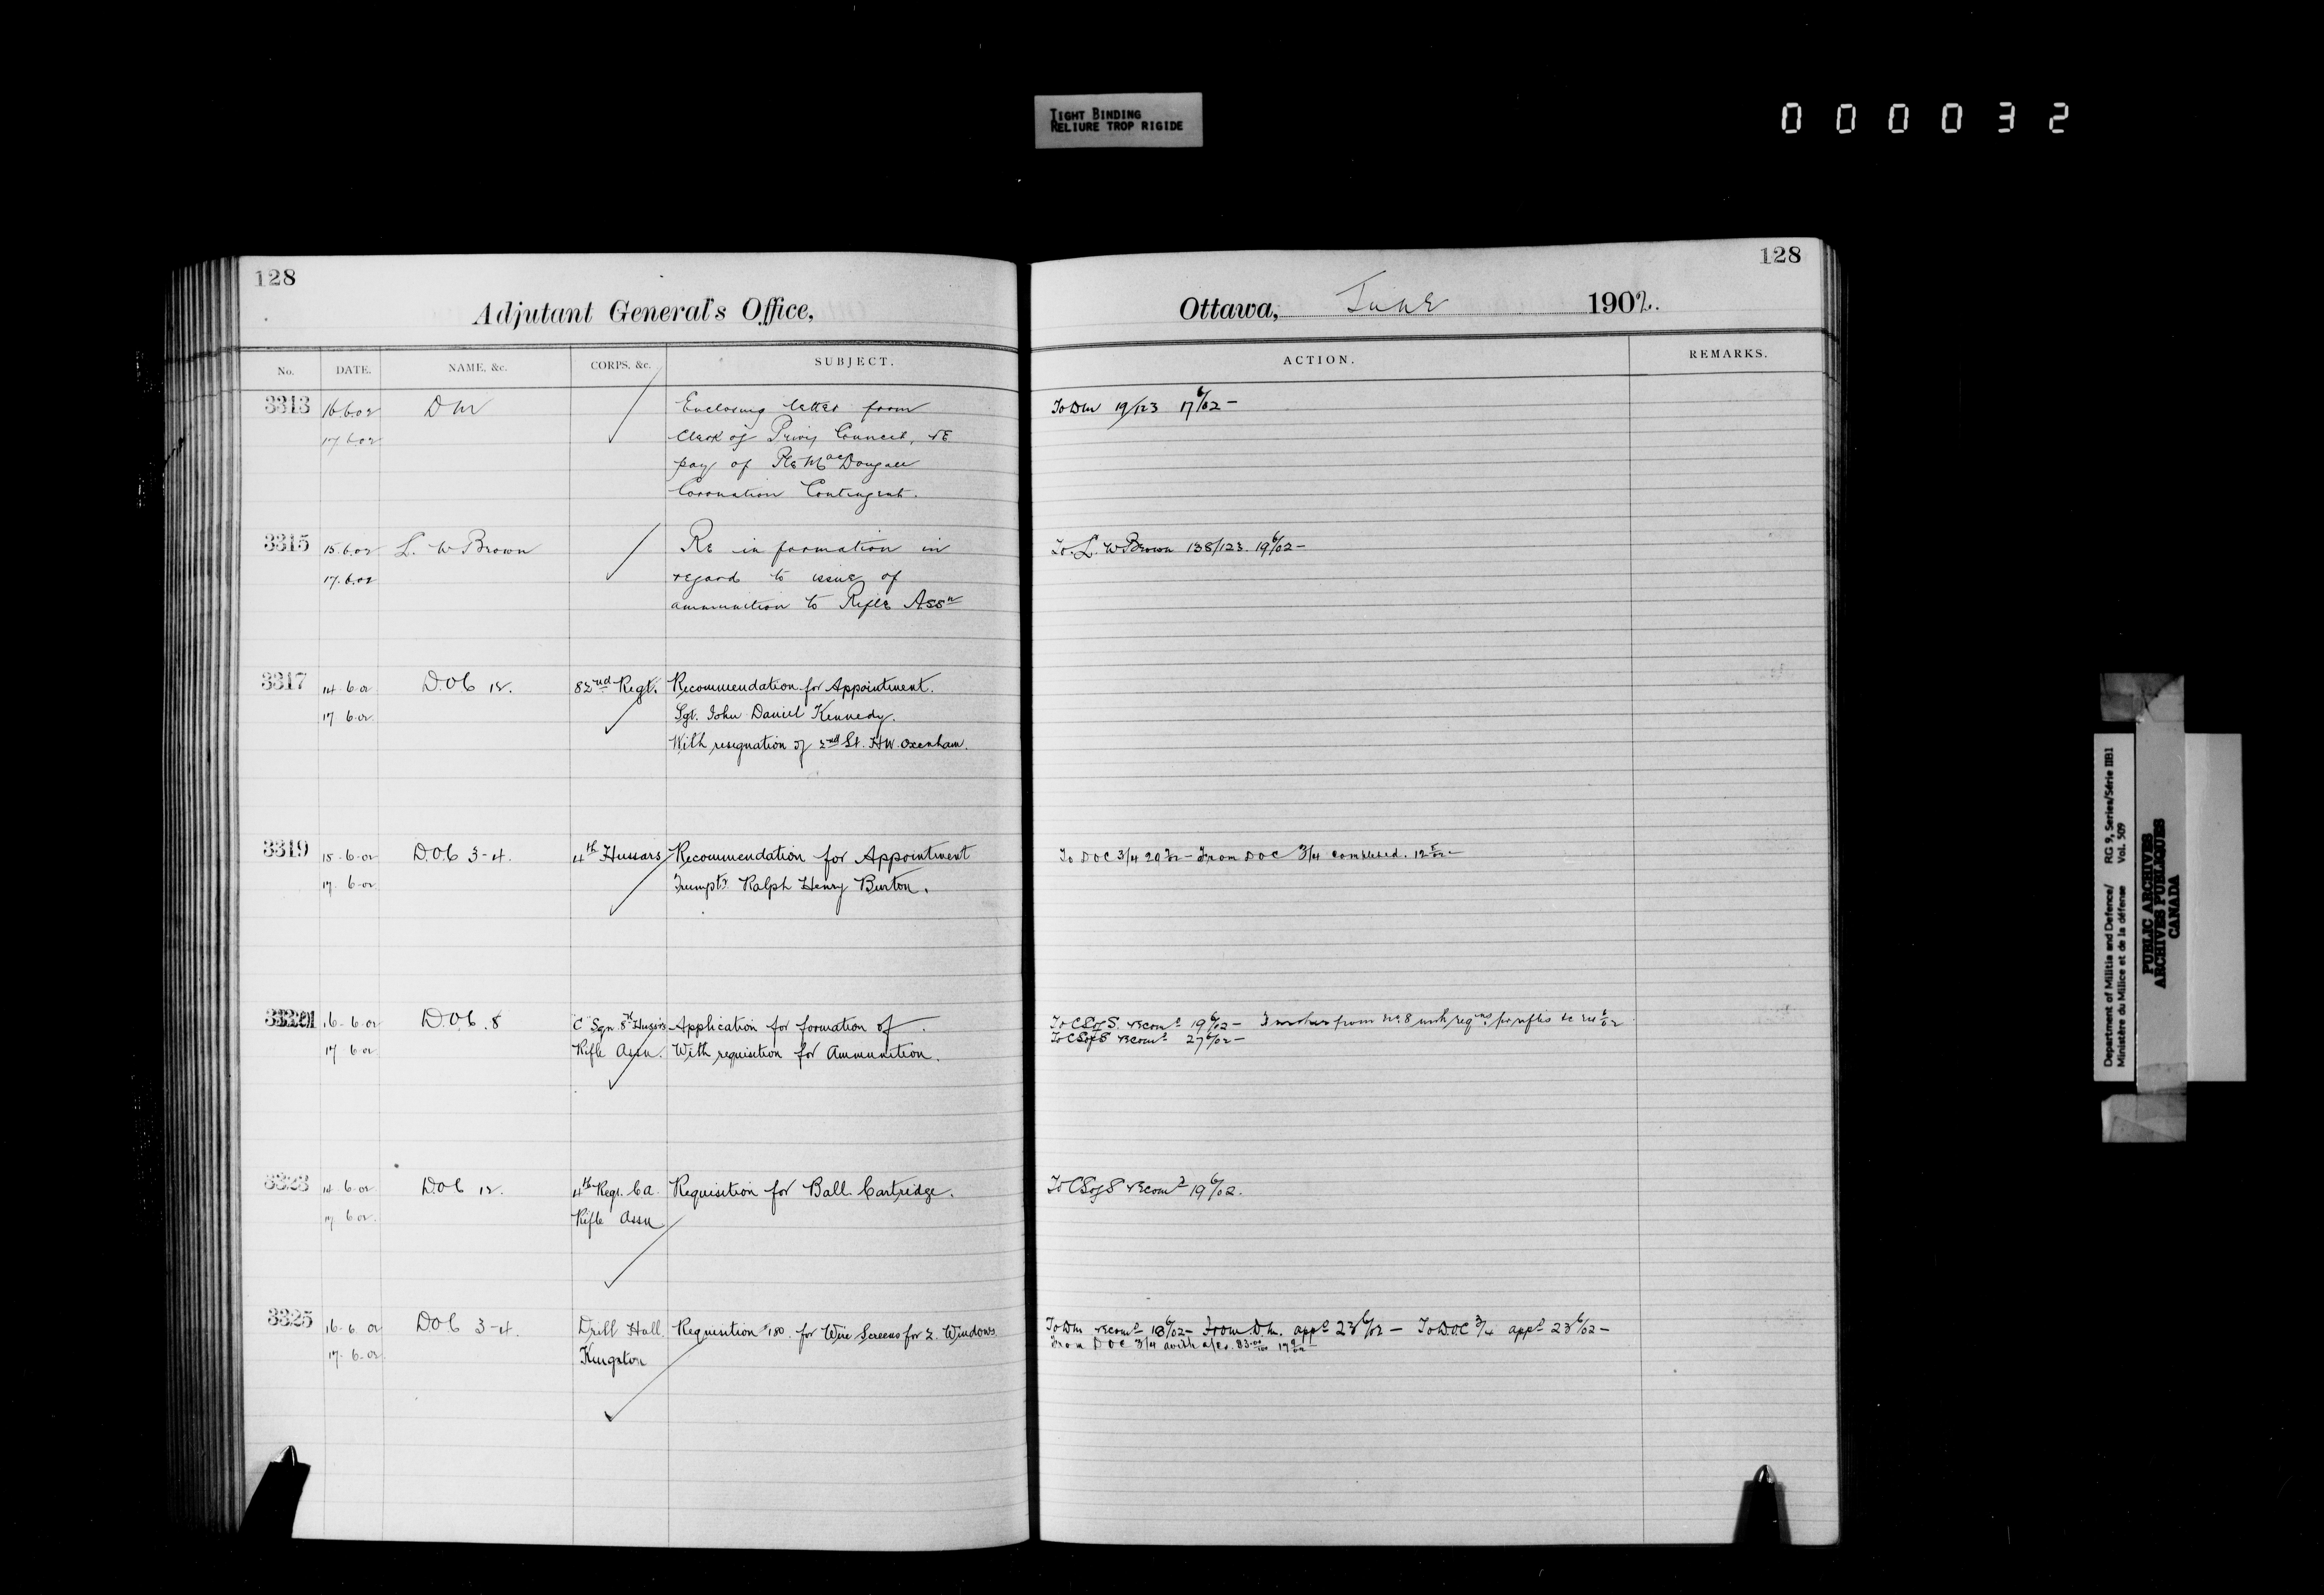 TIGHT BINDING
RELIURE TROP RIGIDE
000032
128
Adjutant General's Office,
No. DATE. NAME, &c. CORPS, &c. SUBJECT.
3313 16.6.02 DM Enclosing letter from
17.6.02 Clerk of Privy Council, re
pay of Pte MacDougall
Coronation Contingent.
3315 15.6.02 L. W Brown Re information in
17.6.02 regard to issue of
ammunition to Rifle Assn
3317 14.6.02 D.O.C 12. 82nd Regt. Recommendation for Appointment.
17 6.02 Sgt. John Daniel Kennedy.
With resignation of 2nd Lt. H.W. Oxenham.
3319 15-6-02 D.O.C 3-4. 4th Hussars Recommendation for Appointment
17. 6-02 Trumptr Ralph Henry Burton.
3321 16-6-02 D.O.C. 8 "C" Sqn. 8th Hussars Application for formation of
17 6-02 Rifle Assn. With requisition for Ammunition.
3323 14 6-02 D.O.C 12. 4th Regt. C.A. Requisition for Ball Cartridge.
17 6-02. Rifle Assn
3325 16-6 02 D.O.C 3-4. Drill Hall Requisition #180. for Wire Screens for 2. Windows
17. 6-02 Kingston
128
Ottawa, June 1902.
ACTION. REMARKS.
To DM 19/123 17 6/02 -
To. L. W Brown 138/123. 19 6/02 -
To DOC 3/4 - From DOC 3/4 completed. 12
To CS of S. recomd 19 6/02 - from No. 8 with reqns. for rifles &c
To CS of S recomd 27 6/02 -
To CS of S recomd 19 6/02.
To DM recomd 18 6/02 - From D.M. appd 23 6/02 - To DOC 3/4 appd 23 6/02 -
From DOC 3/4 with a/cs.
Department of Militia and Defence/ RG 9, Series/Série IIB1
Ministère du Milice et de la défense Vol. 509
PUBLIC ARCHIVES
ARCHIVES PUBLIQUES
CANADA